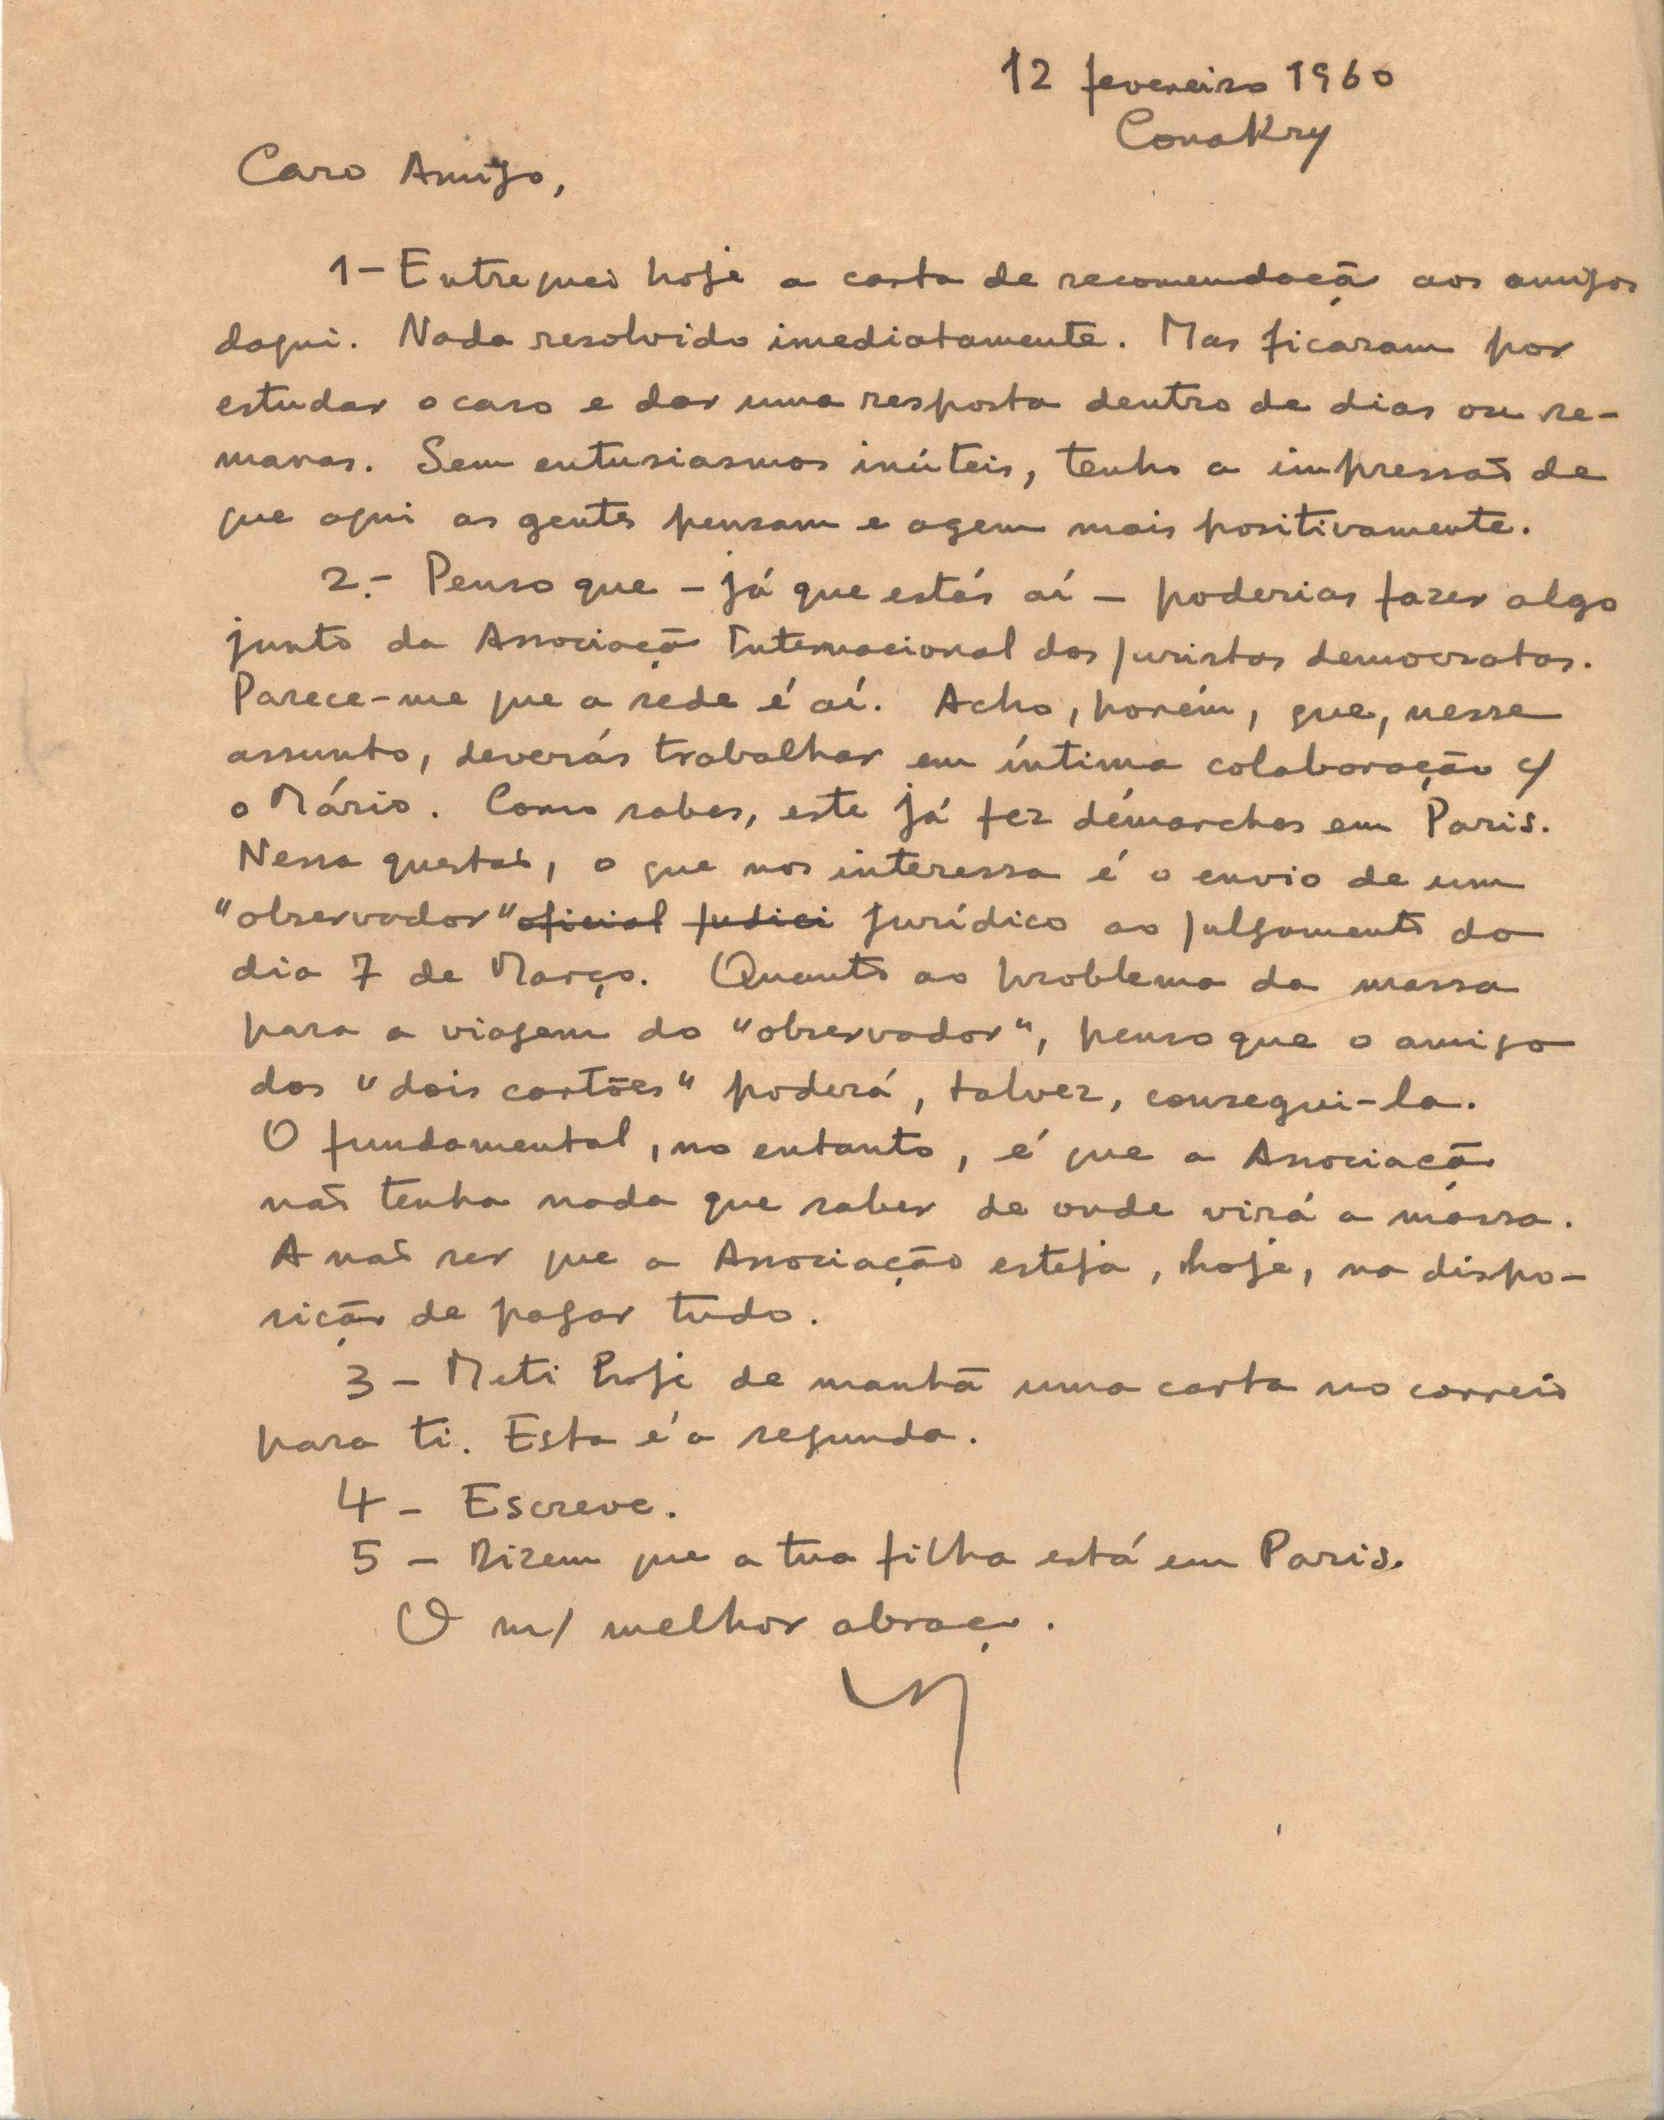 12 fevereiro 1960
Conakry
Caro Amigo,
1 - Entreguei hoje a carta de recomendação aos amigos
daqui. Nada resolvido imediatamente. Mas ficaram por
estudar o caso e dar uma resposta dentro de dias ou se-
manas. Sem entusiasmos inúteis, tenho a impressão de
que aqui as gentes pensam e agem mais positivamente.
2. - Penso que - já que estás aí - poderias fazer algo
junto da Associação Internacional dos juristas democratas.
Parece-me que a sede é aí. Acho, porém, que, nesse
assunto, deverás trabalhar em íntima colaboração c/
o Mário. Como sabes, este já fez démarches em Paris.
Nessa questão, o que nos interessa é o envio de um
"observador" oficial judici jurídico ao julgamento do
dia 7 de Março. Quanto ao problema da massa
para a viagem do "observador", penso que o amigo
dos "dois cartões" poderá, talvez, consegui-la.
O fundamental, no entanto, é que a Associação
não tenha nada que saber de onde virá a massa.
A não ser que a Associação esteja, hoje, na dispo-
sição de pagar tudo.
3 - Meti hoje de manhã uma carta no correio
para ti. Esta é a segunda.
4 - Escreve.
5 - Dizem que a tua filha está em Paris.
O m/ melhor abraço.